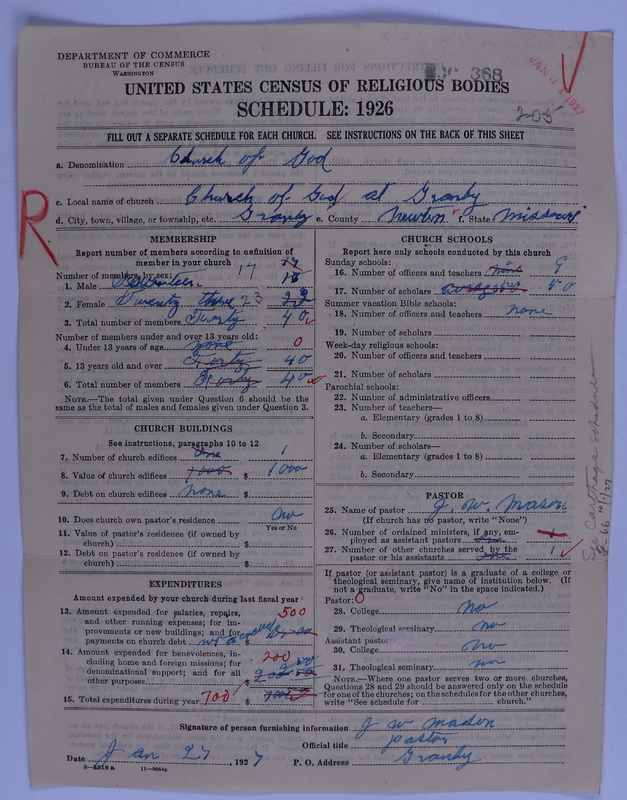 DEPARTMENT OF COMMERCE
BUREAU OF THE CENSUS
WASHINGTON
368
JAN 3 1927
UNITED STATES CENSUS OF RELIGIOUS BODIES
SCHEDULE: 1926
205
FILL OUT A SEPARATE SCHEDULE FOR EACH CHURCH. SEE INSTRUCTIONS ON THE BACK OF THIS SHEET
a. Denomination Church of God
c. Local name of church Church of God at Granby
d. City, town, village, or township, etc. Granby e. County Newton f. State Missouri
R
MEMBERSHIP
Report number of members according to definition of
member in your church
Number of members, by sex:
1. Male Seventeen 17 17
2. Female Twenty three 23
3. Total number of members Forty 40
Number of members under and over 13 years old:
4. Under 13 years of age none 0
5. 13 years old and over Forty 40
6. Total number of members Forty 40
NOTE.—The total given under Question 6 should be the
same as the total of males and females given under Question 3.
CHURCH BUILDINGS
See instructions, paragraphs 10 to 12
7. Number of church edifices One 1
8. Value of church edifices 1000 $ 1000
9. Debt on church edifices none $
10. Does church own pastor's residence no
Yes or No
11. Value of pastor's residence (if owned by
church) $
12. Debt on pastor's residence (if owned by
church) $
EXPENDITURES
Amount expended by your church during last fiscal year
13. Amount expended for salaries, repairs,
and other running expenses; for im-
provements or new buildings; and for
payments on church debt $ 500
14. Amount expended for benevolences, in-
cluding home and foreign missions; for
denominational support; and for all
other purposes $ 200
15. Total expenditures during year 700 $
CHURCH SCHOOLS
Report here only schools conducted by this church
Sunday schools:
16. Number of officers and teachers 9
17. Number of scholars 50
Summer vacation Bible schools:
18. Number of officers and teachers none
19. Number of scholars
Week-day religious schools:
20. Number of officers and teachers
21. Number of scholars
Parochial schools:
22. Number of administrative officers
23. Number of teachers—
a. Elementary (grades 1 to 8)
b. Secondary
24. Number of scholars—
a. Elementary (grades 1 to 8)
b. Secondary
PASTOR
25. Name of pastor J. W. Mason
(If church has no pastor, write "None")
26. Number of ordained ministers, if any, em-
ployed as assistant pastors 1
27. Number of other churches served by the
pastor or his assistants 1
If pastor (or assistant pastor) is a graduate of a college or
theological seminary, give name of institution below. (If
not a graduate, write "No" in the space indicated.)
Pastor: 0
28. College no
29. Theological seminary no
Assistant pastor:
30. College no
31. Theological seminary no
NOTE.—Where one pastor serves two or more churches,
Questions 28 and 29 should be answered only on the schedule
for one of the churches; on the schedules for the other churches,
write "See schedule for church."
See Carthage Schedule
Signature of person furnishing information J W Mason
Official title pastor
Date Jan 27, 1927 P. O. Address Granby
8—5518a 11—9554a